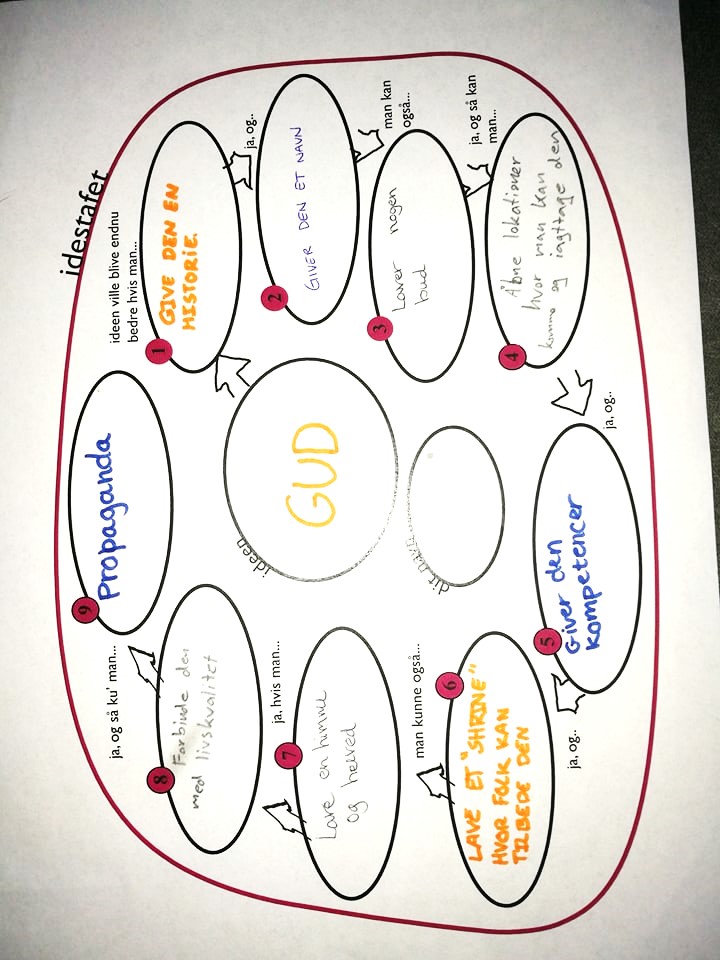 idestafet
ideen
GUD
dit navn
ideen ville blive endnu
bedre hvis man...
1
GIVE DEN EN
HISTORIE.
ja, og..
2
GIVER DEN ET NAVN
man kan
også...
3
Laver nogen
bud
ja, og så kan
man...
4
Åbne lokationer
hvor man kan
komme og iagttage den
ja, og..
5
Giver den
kompetencer
ja, og..
6
LAVE ET "SHRINE"
HVOR FOLK KAN
TILBEDE DEN
man kunne også...
7
Lave en himmel
og helved
ja, hvis man...
8
Forbinde den
med livskvalitet
ja, og så ku' man...
9
Propaganda